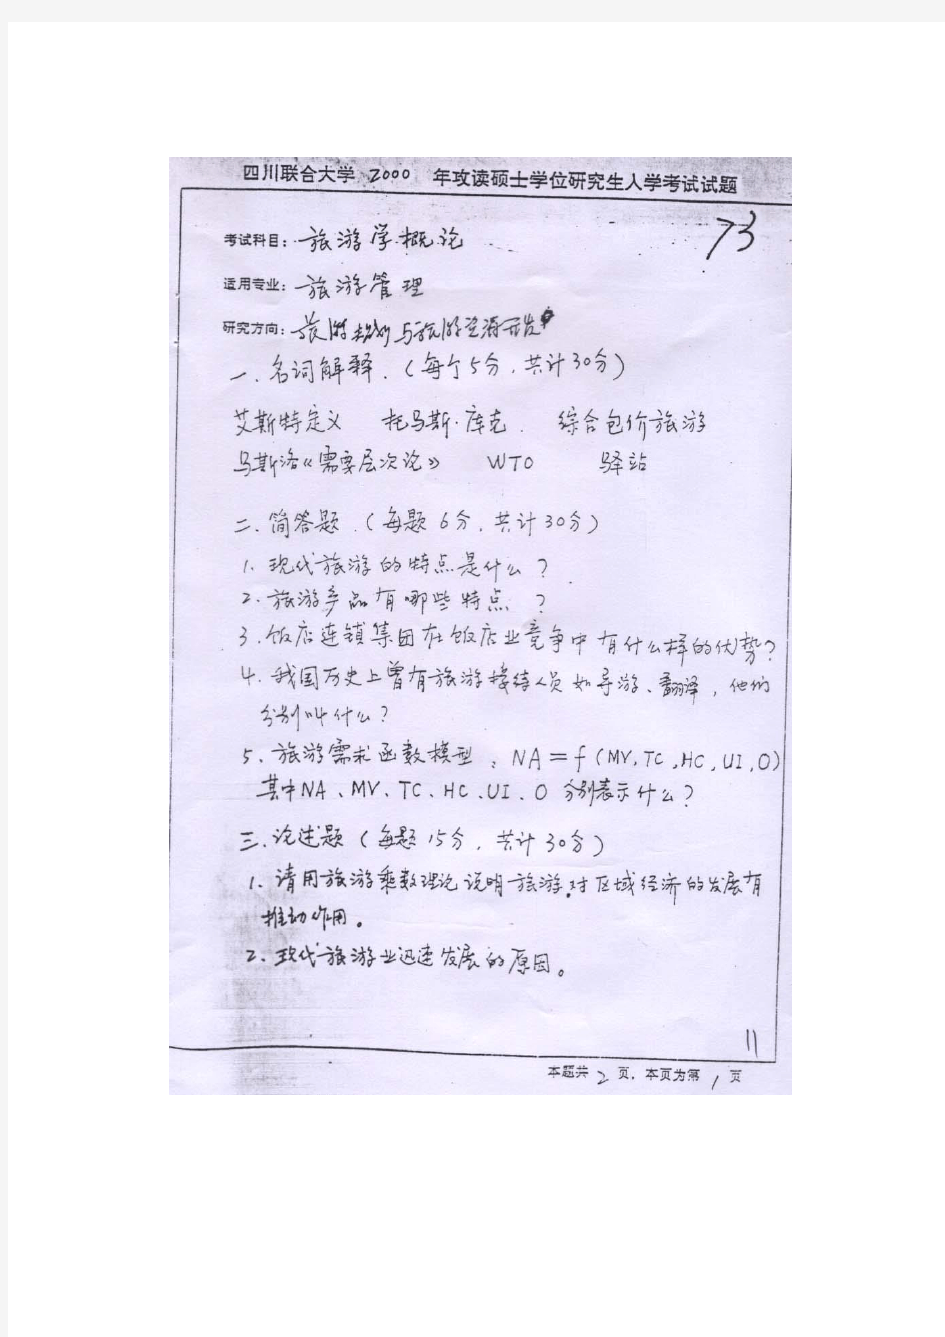 四川联合大学 2000 年攻读硕士学位研究生入学考试试题
73
考试科目: 旅游学概论
适用专业: 旅游管理
研究方向: 旅游规划与旅游资源开发
一、名词解释.(每个5分,共计30分)
艾斯特定义 托马斯·库克. 综合包价旅游
马斯洛《需要层次论》 WTO 驿站
二、简答题.(每题6分,共计30分)
1、现代旅游的特点是什么?
2、旅游产品有哪些特点?
3、饭店连锁集团在饭店业竞争中有什么样的优势?
4、我国历史上曾有旅游接待人员如导游、翻译,他们
分别叫什么?
5、旅游需求函数模型: NA=f(MV,TC,HC,UI,O)
其中NA、MV、TC、HC、UI、O分别表示什么?
三、论述题(每题15分,共计30分)
1、请用旅游乘数理论说明旅游对区域经济的发展有
推动作用。
2、现代旅游业迅速发展的原因。
11
本题共 2 页,本页为第 1 页